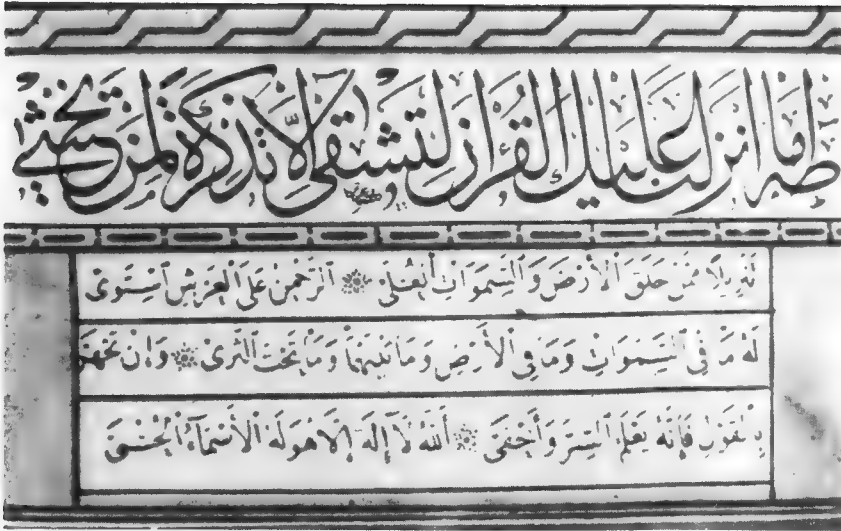 طه مَا أَنْزَلْنَا عَلَيْكَ الْقُرْآنَ لِتَشْقَى إِلَّا تَذْكِرَةً لِمَنْ يَخْشَى
تَنْزِيلًا مِمَّنْ خَلَقَ الْأَرْضَ وَالسَّمَوَاتِ الْعُلَى ۞ الرَّحْمَنُ عَلَى الْعَرْشِ اسْتَوَى
لَهُ مَا فِي السَّمَوَاتِ وَمَا فِي الْأَرْضِ وَمَا بَيْنَهُمَا وَمَا تَحْتَ الثَّرَى ۞ وَإِنْ تَجْهَرْ
بِالْقَوْلِ فَإِنَّهُ يَعْلَمُ السِّرَّ وَأَخْفَى ۞ اللَّهُ لَا إِلَهَ إِلَّا هُوَ لَهُ الْأَسْمَاءُ الْحُسْنَى